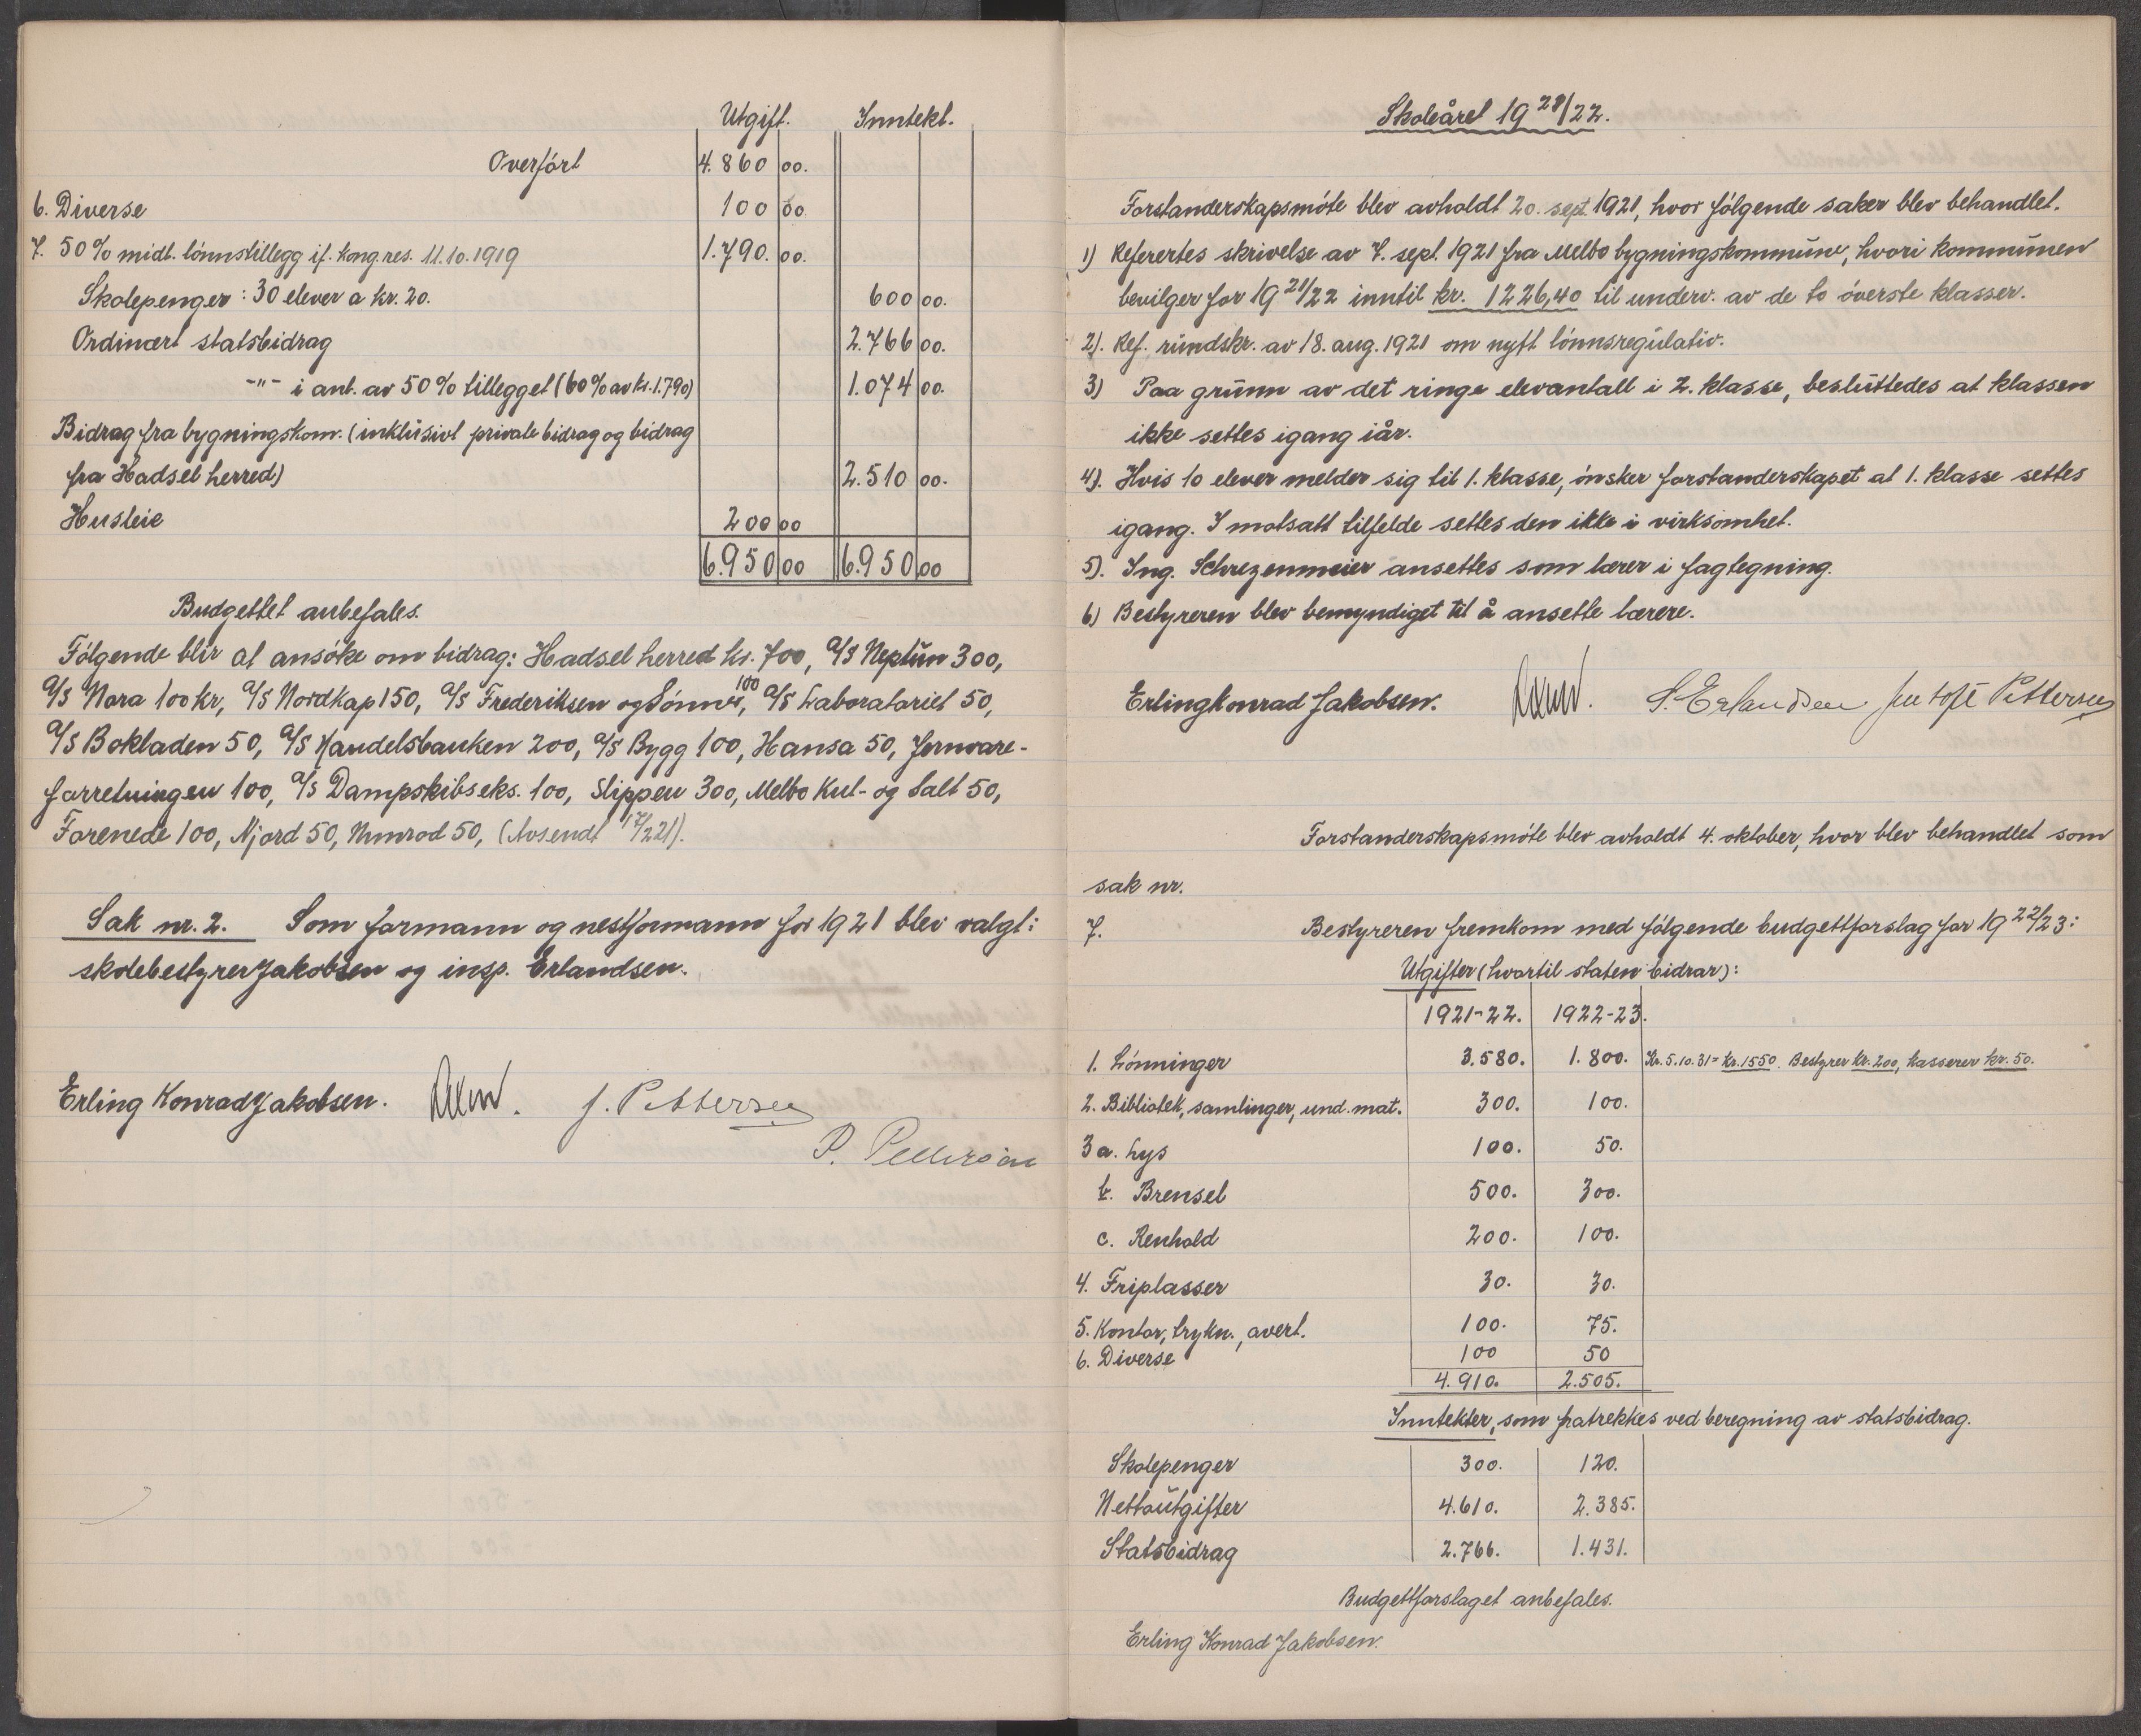 Utgift. Inntekt.
Overført 4.860 00.
6. Diverse 100 00
7. 50% midl. lønnstillegg if. kong.res. 11.10.1919 1.790. 00.
Skolepenger: 30 elever a kr. 20. 600 00.
Ordinært statsbidrag 2.766 00.
-"- i anl. av 50% tillegget (60% av kr. 1.790) 1.074 00.
Bidrag fra bygningskom. (inklusivt private bidrag og bidrag
fra Hadsel herred) 2.510 00.
Husleie 200 00
6.950 00 6.950 00
Budgettet anbefales.
Følgende blir at ansøke om bidrag: Hadsel herred kr. 700, A/S Neptun 300,
A/S Nora 100 kr, A/S Nordkap 150, A/S Frederiksen og Sønner 100, A/S Laboratoriet 50,
A/S Bokladen 50, A/S Handelsbanken 200, A/S Bygg 100, Hansa 50, Jernvare-
forretningen 100, A/S Dampskibseks. 100, Slippen 300, Melbo Kul- og Salt 50,
Forenede 100, Njord 50, Nimrod 50, (Avsendt 17/2 21).
Sak nr. 2. Som formann og nestformann for 1921 blev valgt:
skolebestyrer Jakobsen og insp. Erlandsen.
Erling Konrad Jakobsen. J. Pettersen
P. Pettersen
Skoleåret 19 21/22.
Forstanderskapsmøte blev avholdt 20. sept. 1921, hvor følgende saker blev behandlet.
1) Referertes skrivelse av 7. sept. 1921 fra Melbo bygningskommune, hvori kommunen
bevilger for 19 21/22 inntil kr. 1226,40 til underv. av de to øverste klasser.
2). Ref. rundskr. av 18. aug. 1921 om nytt lønnsregulativ.
3) Paa grunn av det ringe elevantall i 2. klasse, besluttedes at klassen
ikke settes igang iår.
4). Hvis 10 elever melder sig til 1. klasse, ønsker forstanderskapet at 1. klasse settes
igang. I motsatt tilfelde settes den ikke i virksomhet.
5). Ing. Schrezenmeier ansettes som lærer i fagtegning.
6) Bestyreren blev bemyndiget til å ansette lærere.
Erling Konrad Jakobsen. S. Erlandsen Pettersen
Forstanderskapsmøte blev avholdt 4. oktober, hvor blev behandlet som
sak nr.
7. Bestyreren fremkom med følgende budgettforslag for 19 22/23:
Utgifter (hvortil staten bidrar):
1921-22. 1922-23.
1. Lønninger 3.580. 1.800. Kr. 5.10.31 = kr. 1550. Bestyrer kr. 200, kasserer kr. 50.
2. Bibliotek, samlinger, und. mat. 300. 100.
3 a. Lys 100. 50.
b. Brensel 500. 300.
c. Renhold 200. 100.
4. Friplasser 30. 30.
5. Kontor, trykn., avert. 100. 75.
6. Diverse 100 50
4.910. 2.505.
Inntekter, som fratrekkes ved beregning av statsbidrag.
Skolepenger 300. 120.
Nettoutgifter 4.610. 2.385.
Statsbidrag 2.766. 1.431.
Budgettforslaget anbefales.
Erling Konrad Jakobsen.